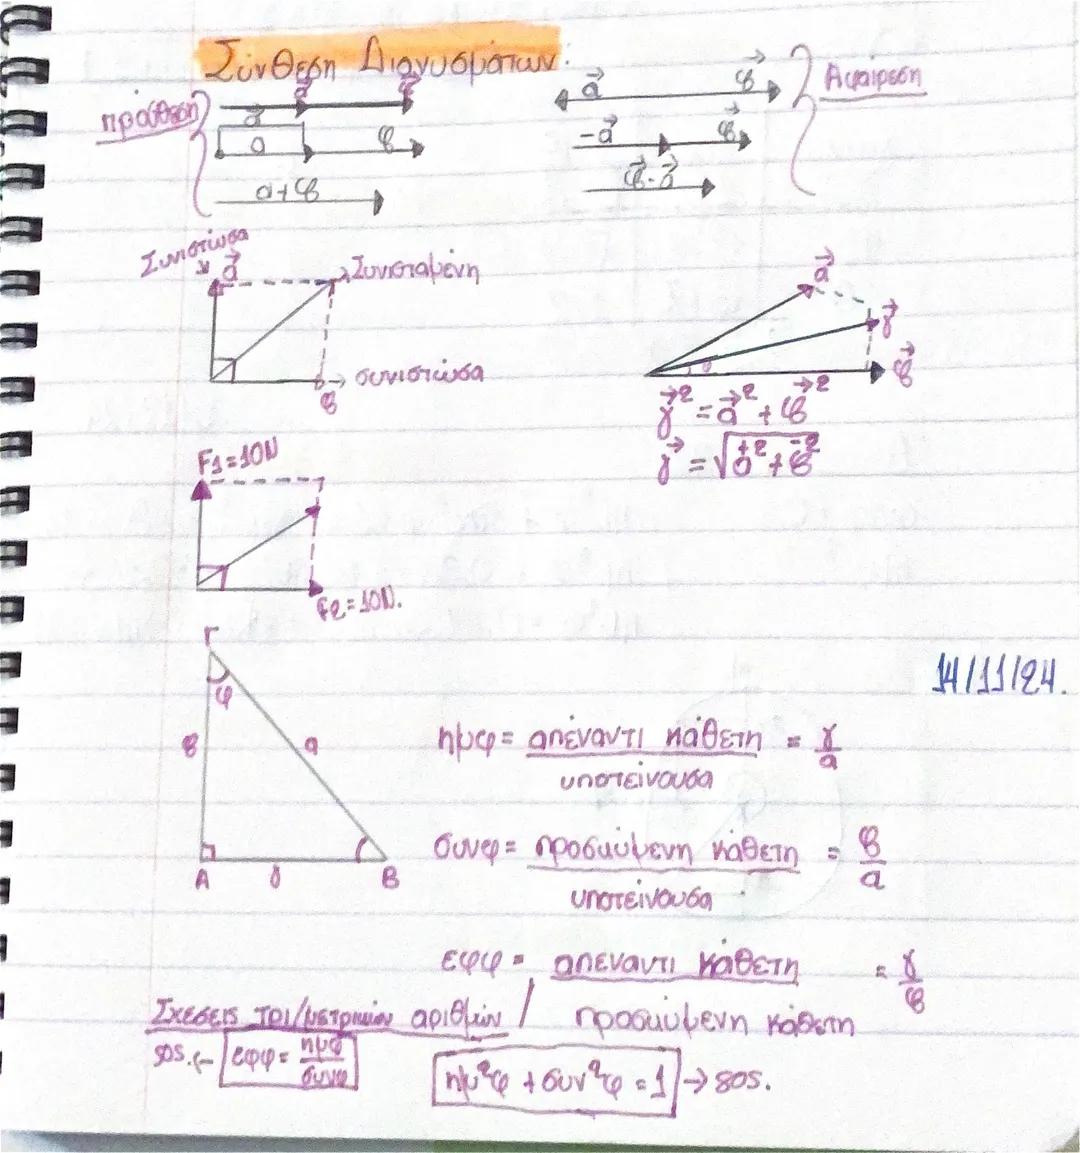 Σύνθεση Διανυσμάτων:
πρόσθεση
a⃗ β⃗
a⃗
a β
a+β
Αφαίρεση
a⃗ β⃗
-a⃗ β⃗
β⃗-a⃗
Συνιστώσα
a⃗
Συνισταμένη
συνιστώσα
β
a⃗
γ⃗
β⃗
γ⃗² = a⃗² + β⃗²
γ⃗ = √a⃗²+β⃗²
F1=10N
F2=10N.
14/11/24.
Γ
φ
β a
A γ B
ημφ = απέναντι κάθετη = γ
υποτείνουσα a
συνφ = προσκύμενη κάθετη = β
υποτείνουσα a
εφφ = απεναντι κάθετη = γ
προσκύμενη κάθετη β
Σχέσεις τρι/μετρικών αριθμών
sos. ← εφφ = ημφ
συνφ
ημ²φ + συν²φ = 1 → sos.